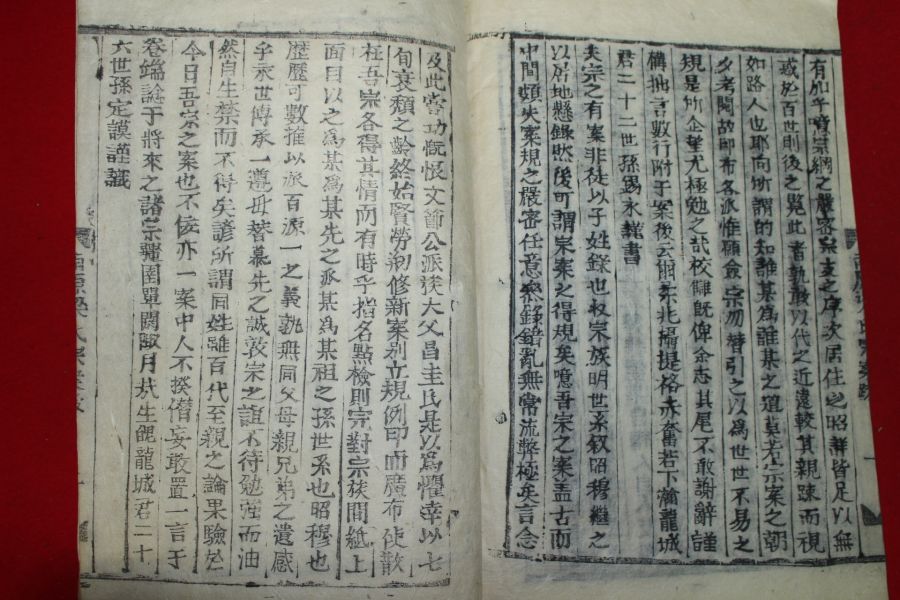 有加乎噫宗綱之嚴密宗支之序次居住之昭詳皆足以無
惑於百世則後之覽此者孰敢以代之近遠較其親疎而視
如路人也耶向所謂的知誰某爲誰某之道莫若宗案之朝
夕考閱故卽布各派惟願僉宗勿替引之以爲世世不易之
規是所企望尤極勉之哉校讎旣俾余志其尾不敢謝辭謹
構拙言數行附于案後云爾宗兆攝提格赤奮若下澣龍城
君二十二世孫錫永謹書
夫宗之有案非徒以子姓錄也收宗族明世系叙昭穆繼之
以居地懸錄然後可謂宗案之得規矣噫吾宗之案盖古而
中間頗失案規之嚴密任意爻錄錯亂無常流弊極矣言念
及此寧功慨恨文節公派後大父昌圭氏是以爲懼幸以七
旬衰頹之齡終始賢勞刱修新案別立規例印而廣布使散
在吾宗各得其情而有時乎指名點檢則宗對宗族間紙上
面目以之爲某爲某先之派某爲某祖之孫世系也昭穆也
歷歷可數推以派百源一之義孰無同父母親兄弟之遺感
乎永世傳承一遵毋替慕先之誠敦宗之誼不待勉强而油
然自生禁而不得矣諺所謂同姓雖百代至親之論果驗於
今日吾宗之案也不佞亦一案中人不揆僭妄敢置一言于
卷端諗于將來之諸宗彊圉單閼陬月哉生魄龍城君二十
六世孫定謨謹識